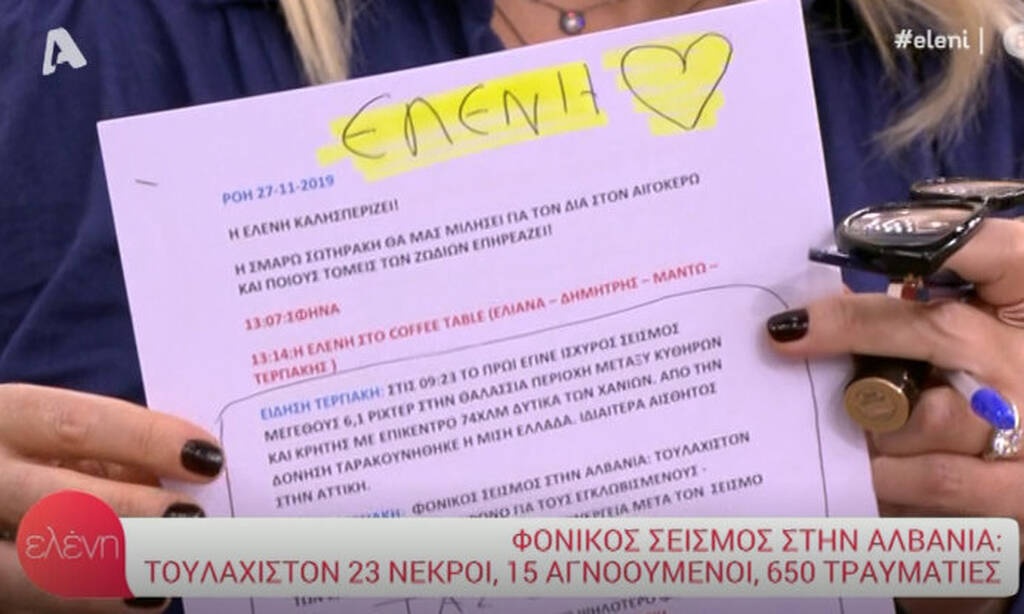 A
#eleni |
ΕΛΕΝΗ
ΡΟΗ 27-11-2019
Η ΕΛΕΝΗ ΚΑΛΗΣΠΕΡΙΖΕΙ!!
Η ΣΜΑΡΩ ΣΩΤΗΡΑΚΗ ΘΑ ΜΑΣ ΜΙΛΗΣΕΙ ΓΙΑ ΤΟΝ ΔΙΑ ΣΤΟΝ ΑΙΓΟΚΕΡΩ
ΚΑΙ ΠΟΙΟΥΣ ΤΟΜΕΙΣ ΤΩΝ ΖΩΔΙΩΝ ΕΠΗΡΕΑΖΕΙ!
13:07:1ΦΗΝΑ
13:14:Η ΕΛΕΝΗ ΣΤΟ COFFEE TABLE (ΕΛΙΑΝΑ – ΔΗΜΗΤΡΗΣ – ΜΑΝΤΩ –
ΤΕΡΠΑΚΗΣ )
ΕΙΔΗΣΗ ΤΕΡΠΑΚΗ: ΣΤΙΣ 09:23 ΤΟ ΠΡΩΙ ΕΓΙΝΕ ΙΣΧΥΡΟΣ ΣΕΙΣΜΟΣ
ΜΕΓΕΘΟΥΣ 6,1 ΡΙΧΤΕΡ ΣΤΗΝ ΘΑΛΑΣΣΙΑ ΠΕΡΙΟΧΗ ΜΕΤΑΞΥ ΚΥΘΗΡΩΝ
ΚΑΙ ΚΡΗΤΗΣ ΜΕ ΕΠΙΚΕΝΤΡΟ 74ΧΛΜ ΔΥΤΙΚΑ ΤΩΝ ΧΑΝΙΩΝ. ΑΠΟ ΤΗΝ
ΔΟΝΗΣΗ ΤΑΡΑΚΟΥΝΗΘΗΚΕ Η ΜΙΣΗ ΕΛΛΑΔΑ. ΙΔΙΑΙΤΕΡΑ ΑΙΣΘΗΤΟΣ
ΣΤΗΝ ΑΤΤΙΚΗ.
ΦΟΝΙΚΟΣ ΣΕΙΣΜΟΣ ΣΤΗΝ ΑΛΒΑΝΙΑ: ΤΟΥΛΑΧΙΣΤΟΝ
ΓΙΑ ΤΟΥΣ ΕΓΚΛΩΒΙΣΜΕΝΟΥΣ -
ΜΕΤΑ ΤΟΝ ΣΕΙΣΜΟ
ελένη
ΦΟΝΙΚΟΣ ΣΕΙΣΜΟΣ ΣΤΗΝ ΑΛΒΑΝΙΑ:
ΤΟΥΛΑΧΙΣΤΟΝ 23 ΝΕΚΡΟΙ, 15 ΑΓΝΟΟΥΜΕΝΟΙ, 650 ΤΡΑΥΜΑΤΙΕΣ